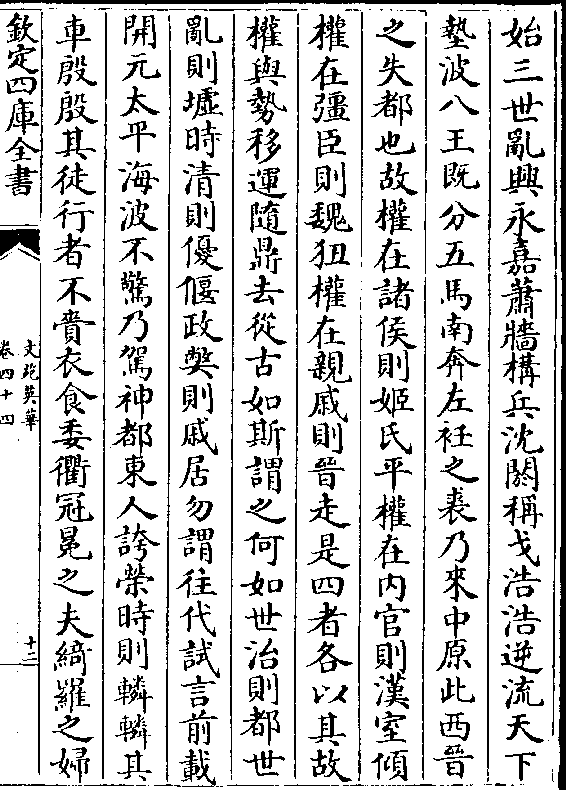 始三世亂興永嘉蕭牆構兵沈閼稱戈浩浩逆流天下
墊波八王既分五馬南奔左衽之裘乃來中原此西晉
之失都也故權在諸侯則姬氏平權在内官則漢室傾
權在彊臣則魏狃權在親戚則晉走是四者各以其故
權與勢移運隨鼎去從古如斯謂之何如世治則都世
亂則墟時清則優偃政獘則戚居勿謂往代試言前載
開元太平海波不驚乃駕神都東人誇榮時則轔轔其
車殷殷其徒行者不賷衣食委衢冠冕之夫綺羅之婦
欽定四庫全書
文苑英華
卷四十四
十三